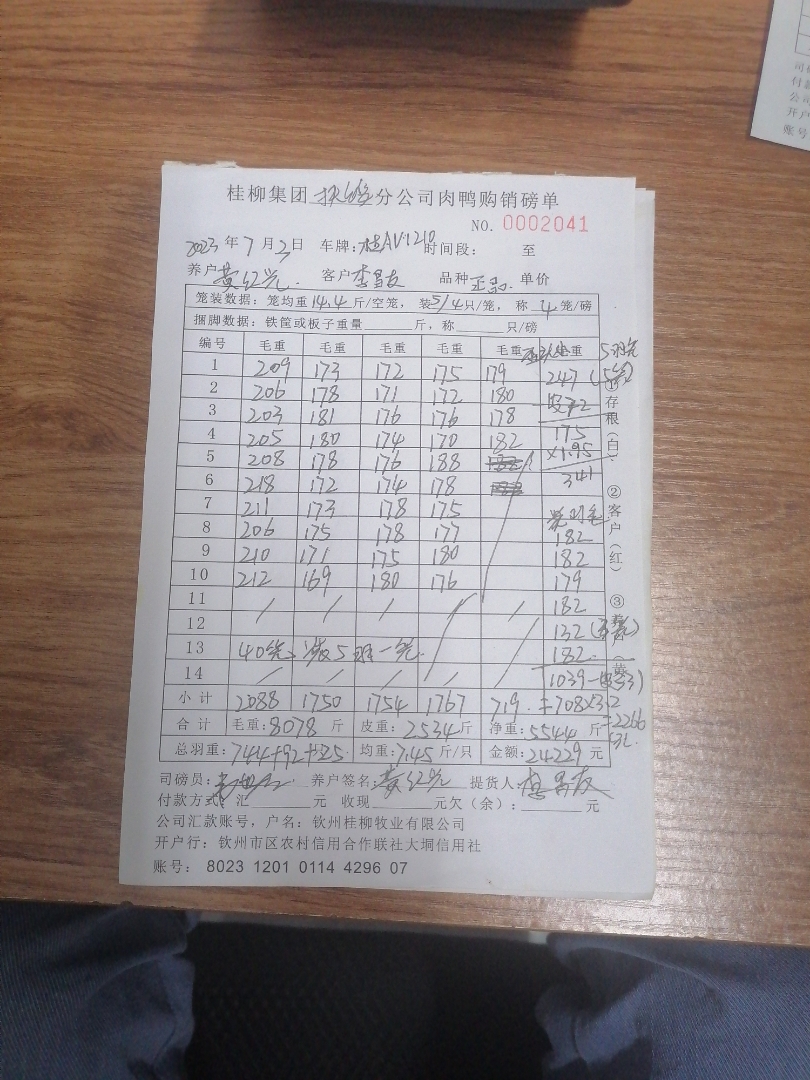 桂柳集团 分公司肉鸭购销磅单
NO. 0002041
2023年7月3日 车牌:桂AV1210 时间段: 至
养户 黄红光 客户 李昌友 品种 正品 单价
笼装数据:笼均重14.4斤/空笼,装5/4只/笼,称4笼/磅
捆脚数据:铁筐或板子重量 斤,称 只/磅
编号 毛重 毛重 毛重 毛重 毛重 重
1 209 173 172 175 179 247
2 206 178 171 172 180
3 203 181 176 176 178
4 205 180 174 170 182 175
5 208 178 176 188 ×1.95
6 218 172 174 178 341
7 211 173 178 175
8 206 175 178 177 182
9 210 171 175 180 182
10 212 169 180 176 179
11 / / / / / 182
12 132
13 40笼 5 一笼 182
14 / / / / / 1039
小计 2088 1750 1754 1767 719 =708×3.2
=2266
合计 毛重:8078斤 皮重:2534斤 净重:5544斤
总羽重:744+92+25 均重:7.45斤/只 金额:24229元
司磅员: 养户签名:黄红光 提货人:李昌友
付款方式:汇 元 收现 元欠(余): 元
公司汇款账号,户名:钦州桂柳牧业有限公司
开户行:钦州市区农村信用合作联社大垌信用社
账号: 8023 1201 0114 4296 07
①存根(白)
②客户(红)
③
司
付款
公司
开户
账号